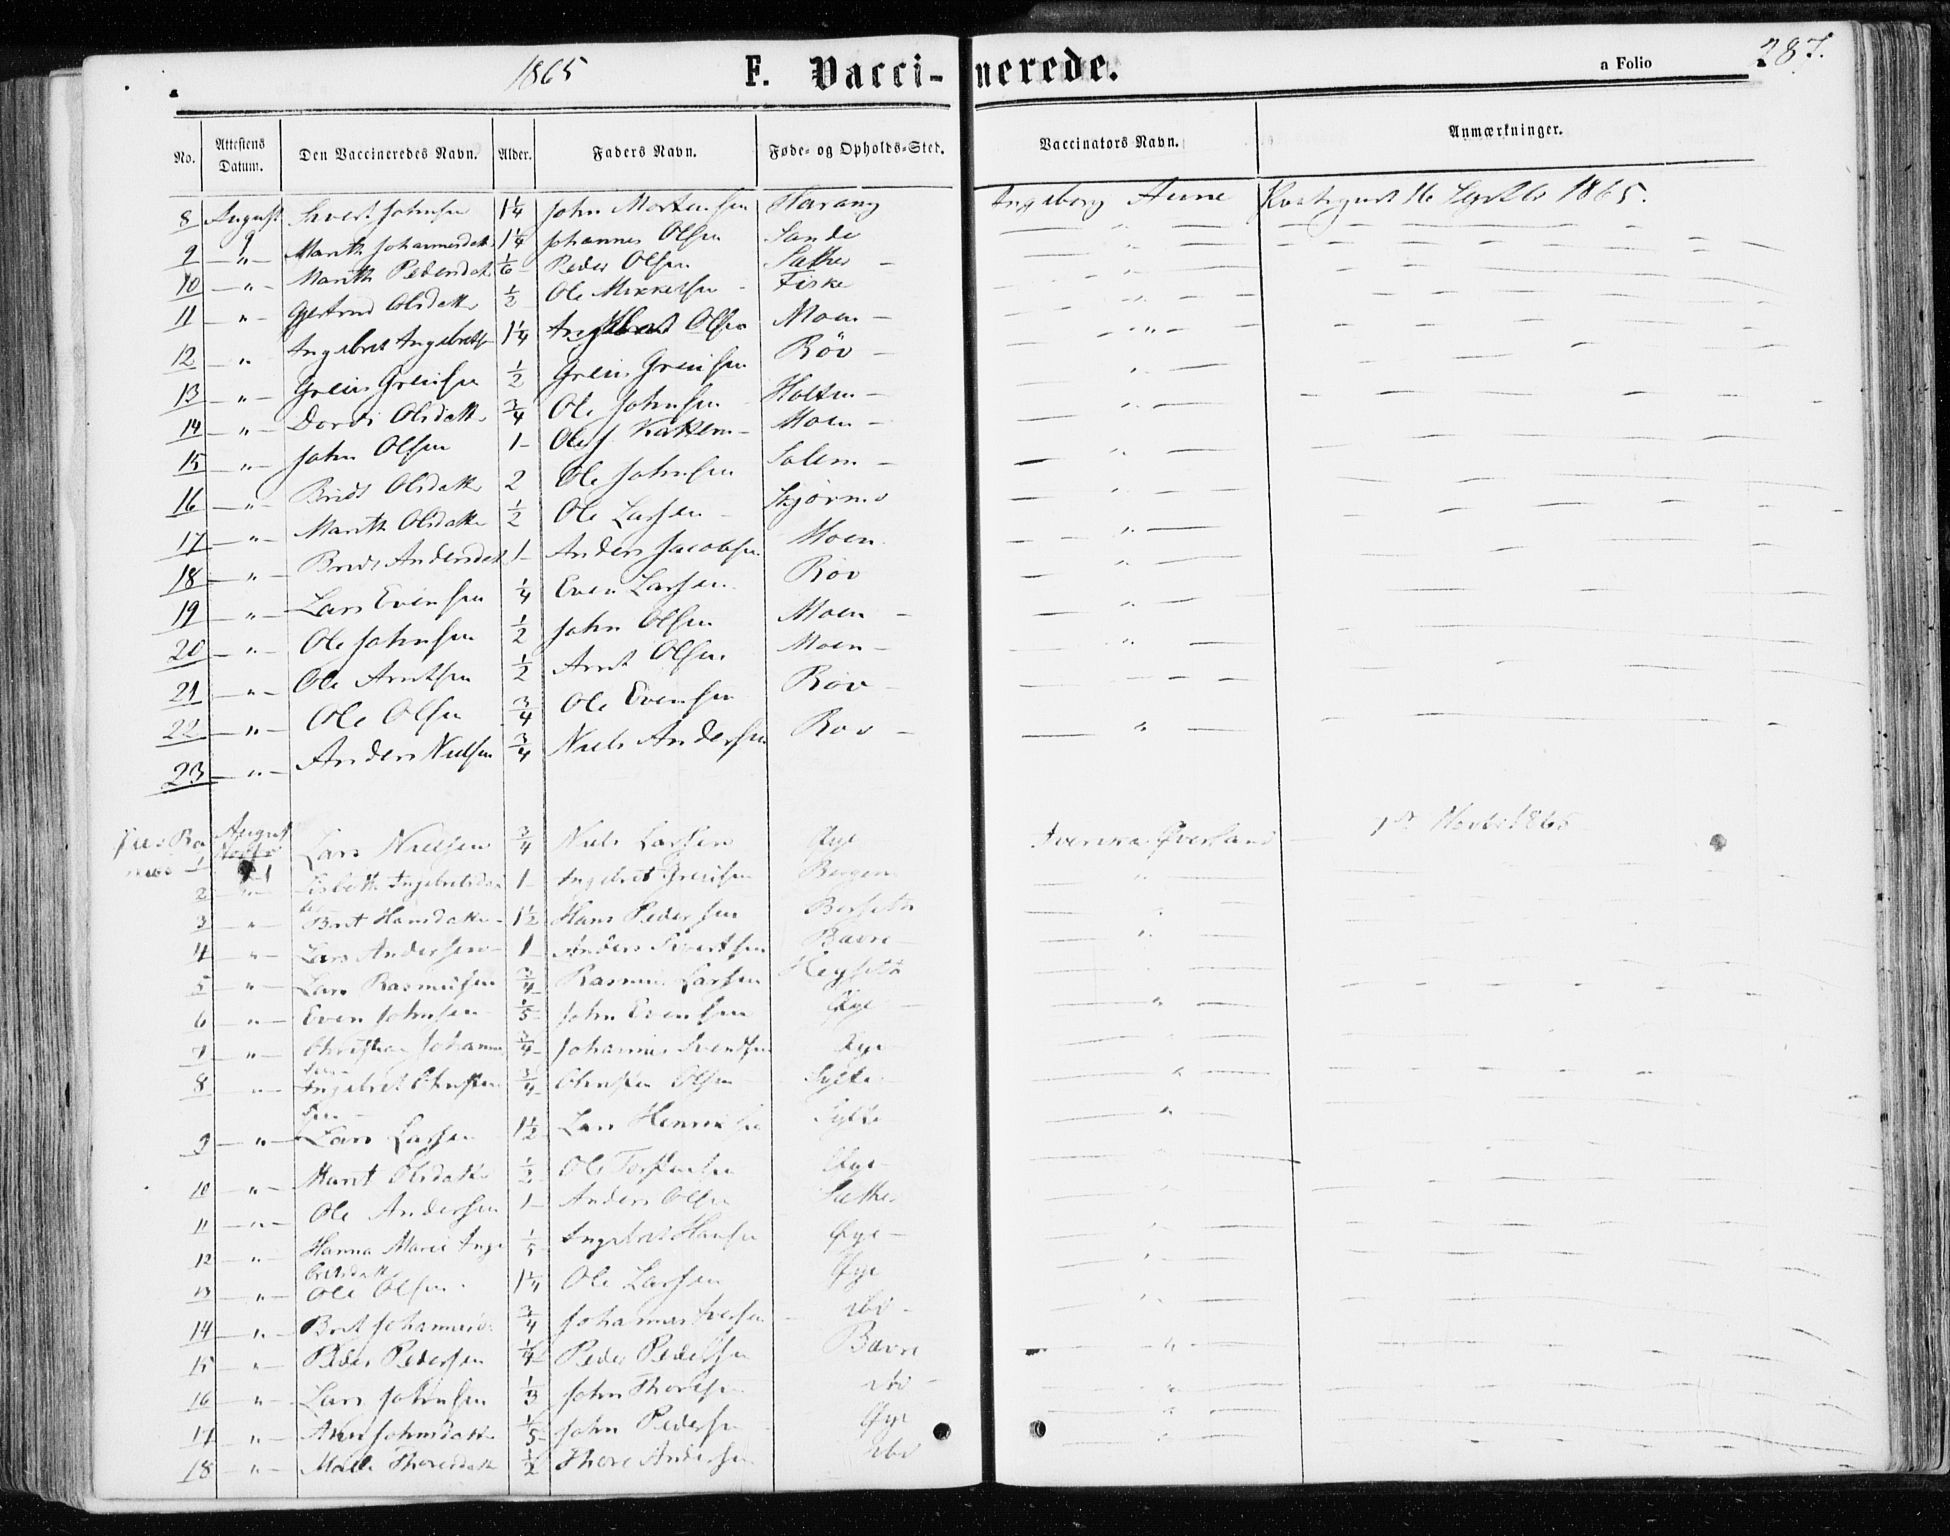 1865 F. Vacci-nerede. a Folio 287.
No. Attestens Datum. Den Vaccineredes Navn. Alder. Faders Navn. Føde- og Opholds-Sted. Vaccinators Navn. Anmærkninger.
8 August Sivert Johnsen 1¼ John Mortensen Harang Ingeborg Aune 16 1865.
9 9 Marith Johannesdatter 1¼ Johannes Olsen Sande
10 — " — Marith Pedersdatter 1/6 Peder Olsen Sæther
11 — " — Gjertrud Olsdatter ½ Ole Mikkelsen Fiske
12 — " Ingebret Ingebretsen 1¼ Ingebret Olsen Moen —
13 — " — Greis Greisen ½ Greis Greisen Röv —
14 — " — Dordi Olsdatter ¾ Ole Johnsen Holten —
15 — " — John Olsen 1 — Ole J. Moen —
16 — " — Brit Olsdatter 2 Ole Johnsen Solem —
17 — " — Marith Olsdatter ½ Ole Larsen Skjörmo
18 — " — Brit Andersdatter 1 — Anders Jacobsen Moen
19 — " — Lars Evensen ¼ Even Larsen Röv
20 — " — Ole Johnsen ½ John Olsen Moen —
21 — " — Ole Arntsen ½ Arnt Olsen Moen —
22 — " — Ole Olsen ¾ Ole Evensen Röv —
23 — " — Anders Nielsen ¾ Niels Andersen Röv —
1 August 21 Lars Nielsen ¾ Niels Larsen Øye Øverland 1865
2 — " — Ingebretsdatter 1 — Ingebret Greisen Bergem
3 — " — Brit Hansdatter 1½ Hans Pedersen Bersetn
4 — " — Lars Andersen 1 — Anders Sivertsen Bævre
5 — " — Lars Rasmusen ¾ Rasmus Larsen
6 — " — Even Johnsen 1/5 John Evensen Øye
7 — " — Christian Johannessen ¾ Johannes Svendsen Øye
8 — " — Ingebret Christensen ¾ Christen Olsen Sylte
9 — " — Lars Larsen 1½ Lars Henriksen Sylte
10 — " — Marit Olsdatter ½ Ole Torstensen Øye
11 — " — Ole Andersen 1 — Anders Olsen Sæther
12 — " — Hanna Marie Ingebretsdatter 1/5 Ingebret Hansen Øye —
13 — " — Ole Olsen 1¼ Ole Larsen Øye
14 — " — Brit Johannesd. ¾ Johannes Iversen ibd —
15 — " — Peder Pedersen ¼ Peder Pedersen Bævre
16 — " — Lars Johnsen ⅓ John Thoresen ibd —
17 — " — Johnsdatter 1/5 John Pedersen Øye
18 — " — Thoresdatter ½ Thore Andersen ibd